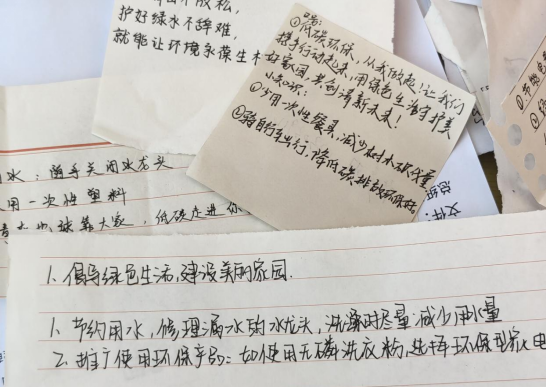 护好绿水不辞难,
就能让环境永葆生
低碳环保,从我做起!让我们
携手行动起来,用绿色生活守护美
好家园,共创清新未来!
小知识:
①少用一次性餐具,减少树木砍伐量
②骑自行车出行,降低碳排放环保好
水:随手关闭水龙头
用一次性塑料
靠大家,低碳走进你
①节
文件:
1. 倡导绿色生活,建设美丽家园.
1. 节约用水,修理漏水的水龙头,洗澡时尽量减少用水量
2. 推广使用环保产品:如使用无磷洗衣粉,选择环保型家电